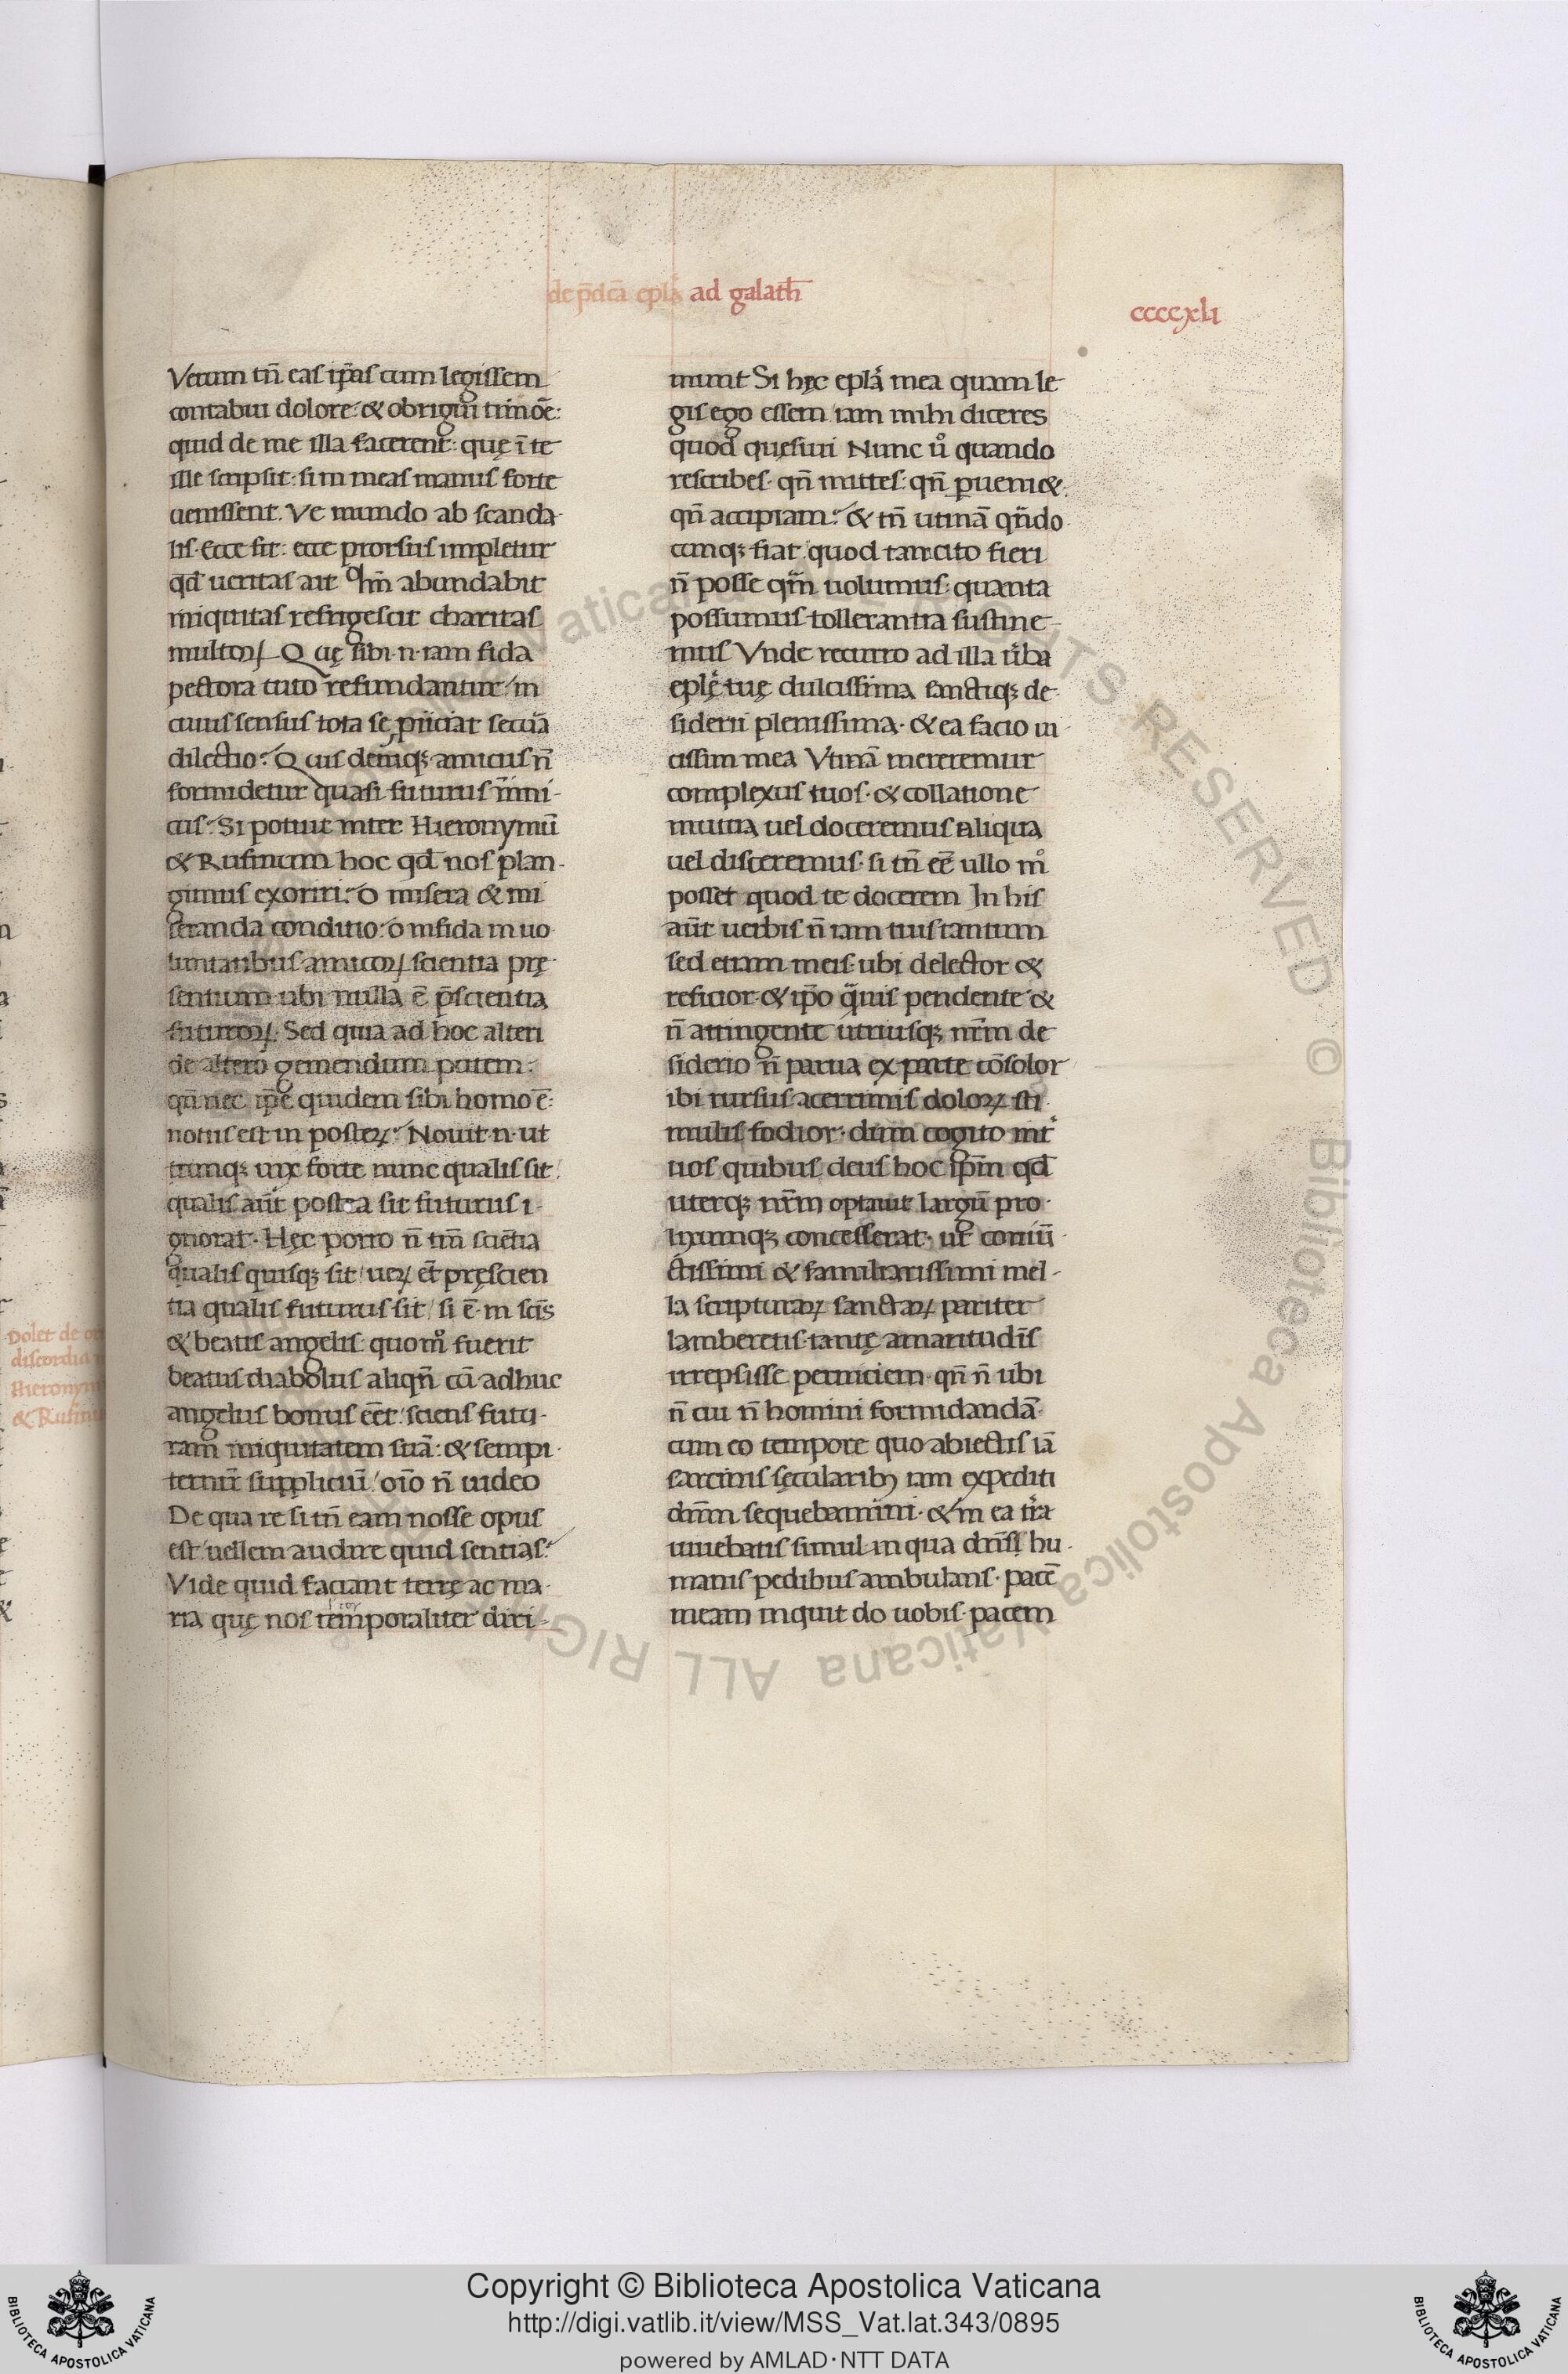 de p̄dcā epl̄a ad galath̄
ccccxli
Verum tn̄ eas ip̄as cum legissem
contabui dolore: & obrigui timōe:
quid de me illa facerent: quę ī te
ille scripsit: si in meas manus forte
uenissent. Ve mundo ab scanda-
lis. Ecce fit: ecce prorsus impletur
qd̄ ueritas ait Qm̄ abundabit
iniquitas refrigescit charitas
multoꝝ Quę sibi .n. iam fida
pectora tuto refundantur: in
cuius sensus tota se, piiciat secura
dilectio? Quis deniqꝫ amicus n̄
formidetur quasi futurus inimi-
cus? Si potuit inter Hieronymū
& Rufinum hoc qd̄ nos plan-
gimus exoriri? O misera & mi
seranda conditio: o infida in uo
luntatibus amicoꝝ scientia prę-
sentium ubi nulla ē p̄scientia
futuroꝝ. Sed quia ad hoc alteri
de altero gemendum putem:
qn̄ nec ip̄e quidem sibi homo ē:
notus est in posteꝝ? Nouit .n. ut
cunqꝫ uix forte nunc qualis sit:
qualis aūt postea sit futurus i-
gnorat. Hęc porro n̄ tm̄ sciētia
qualis quisqꝫ sit: ueꝝ et̄ pręscien
tia qualis futurus sit: si ē in scīs
& beatis angelis: quomᵒ fuerit
beatus diabolus aliqn̄ cū adhuc
angelus bonus eēt: sciens futu-
ram iniquitatem suā: & sempi-
ternū suppliciū: oīo n̄ uideo
De qua re si tn̄ eam nosse opus
est: uellem audire quid sentias?
Vide quid faciant terrę ac ma-
ria quę nos temporaliter diri-
munt Si hęc epl̄a mea quam le
gis ego essem iam mihi diceres
quod quęsiui Nunc uᵒ quando
rescribes. qn̄ mittes: qn̄ ꝑueni&.
qn̄ accipiam? & tn̄ utinā qn̄do
cunqꝫ fiat quod tam cito fieri
n̄ posse qm̄ uolumus: quanta
possumus tollerantia sustine-
mus Vnde recurro ad illa ūba
epl̄ę tuę dulcissima sanctiqꝫ de-
siderii plenissima. & ea facio ui-
cissim mea Vtinā mereremur
complexus tuos. & collatione
mutua uel doceremus aliqua
uel disceremus. si tn̄ eē ullo mᵒ
posset quod te docerem In his
aūt uerbis n̄ iam tuis tantum
sed etiam meis: ubi delector &
reficior. & ip̄o q̄uis pendente &
n̄ attingente utriusqꝫ nr̄m de
siderio n̄ parua ex parte cōsolor
ibi rursus acerrimis doloꝝ sti
mulis fodior. dum cogito int̄
uos quibus deus hoc ip̄m qd̄
uterqꝫ nr̄m optauit largū pro-
lixumqꝫ concesserat. ut coniū-
ctissimi & familiarissimi mel-
la scripturaꝝ sanctaꝝ pariter
lamberetis. tantę amaritudīs
irrepsisse perniciem. qn̄ n̄ ubi
n̄ cui n̄ homini formidandā.
cum eo tempore quo abiectis iā
sarcinis sęcularibꝫ iam expediti
dn̄m sequebamini. & in ea tr̄a
uiuebatis simul in qua dn̄s hu-
manis pedibus ambulans. pacē
meam inquit do uobis. pacem
Dolet de
discordia
Hieronym
& Rufin
Copyright © Biblioteca Apostolica Vaticana
http://digi.vatlib.it/view/MSS_Vat.lat.343/0895
powered by AMLAD·NTT DATA